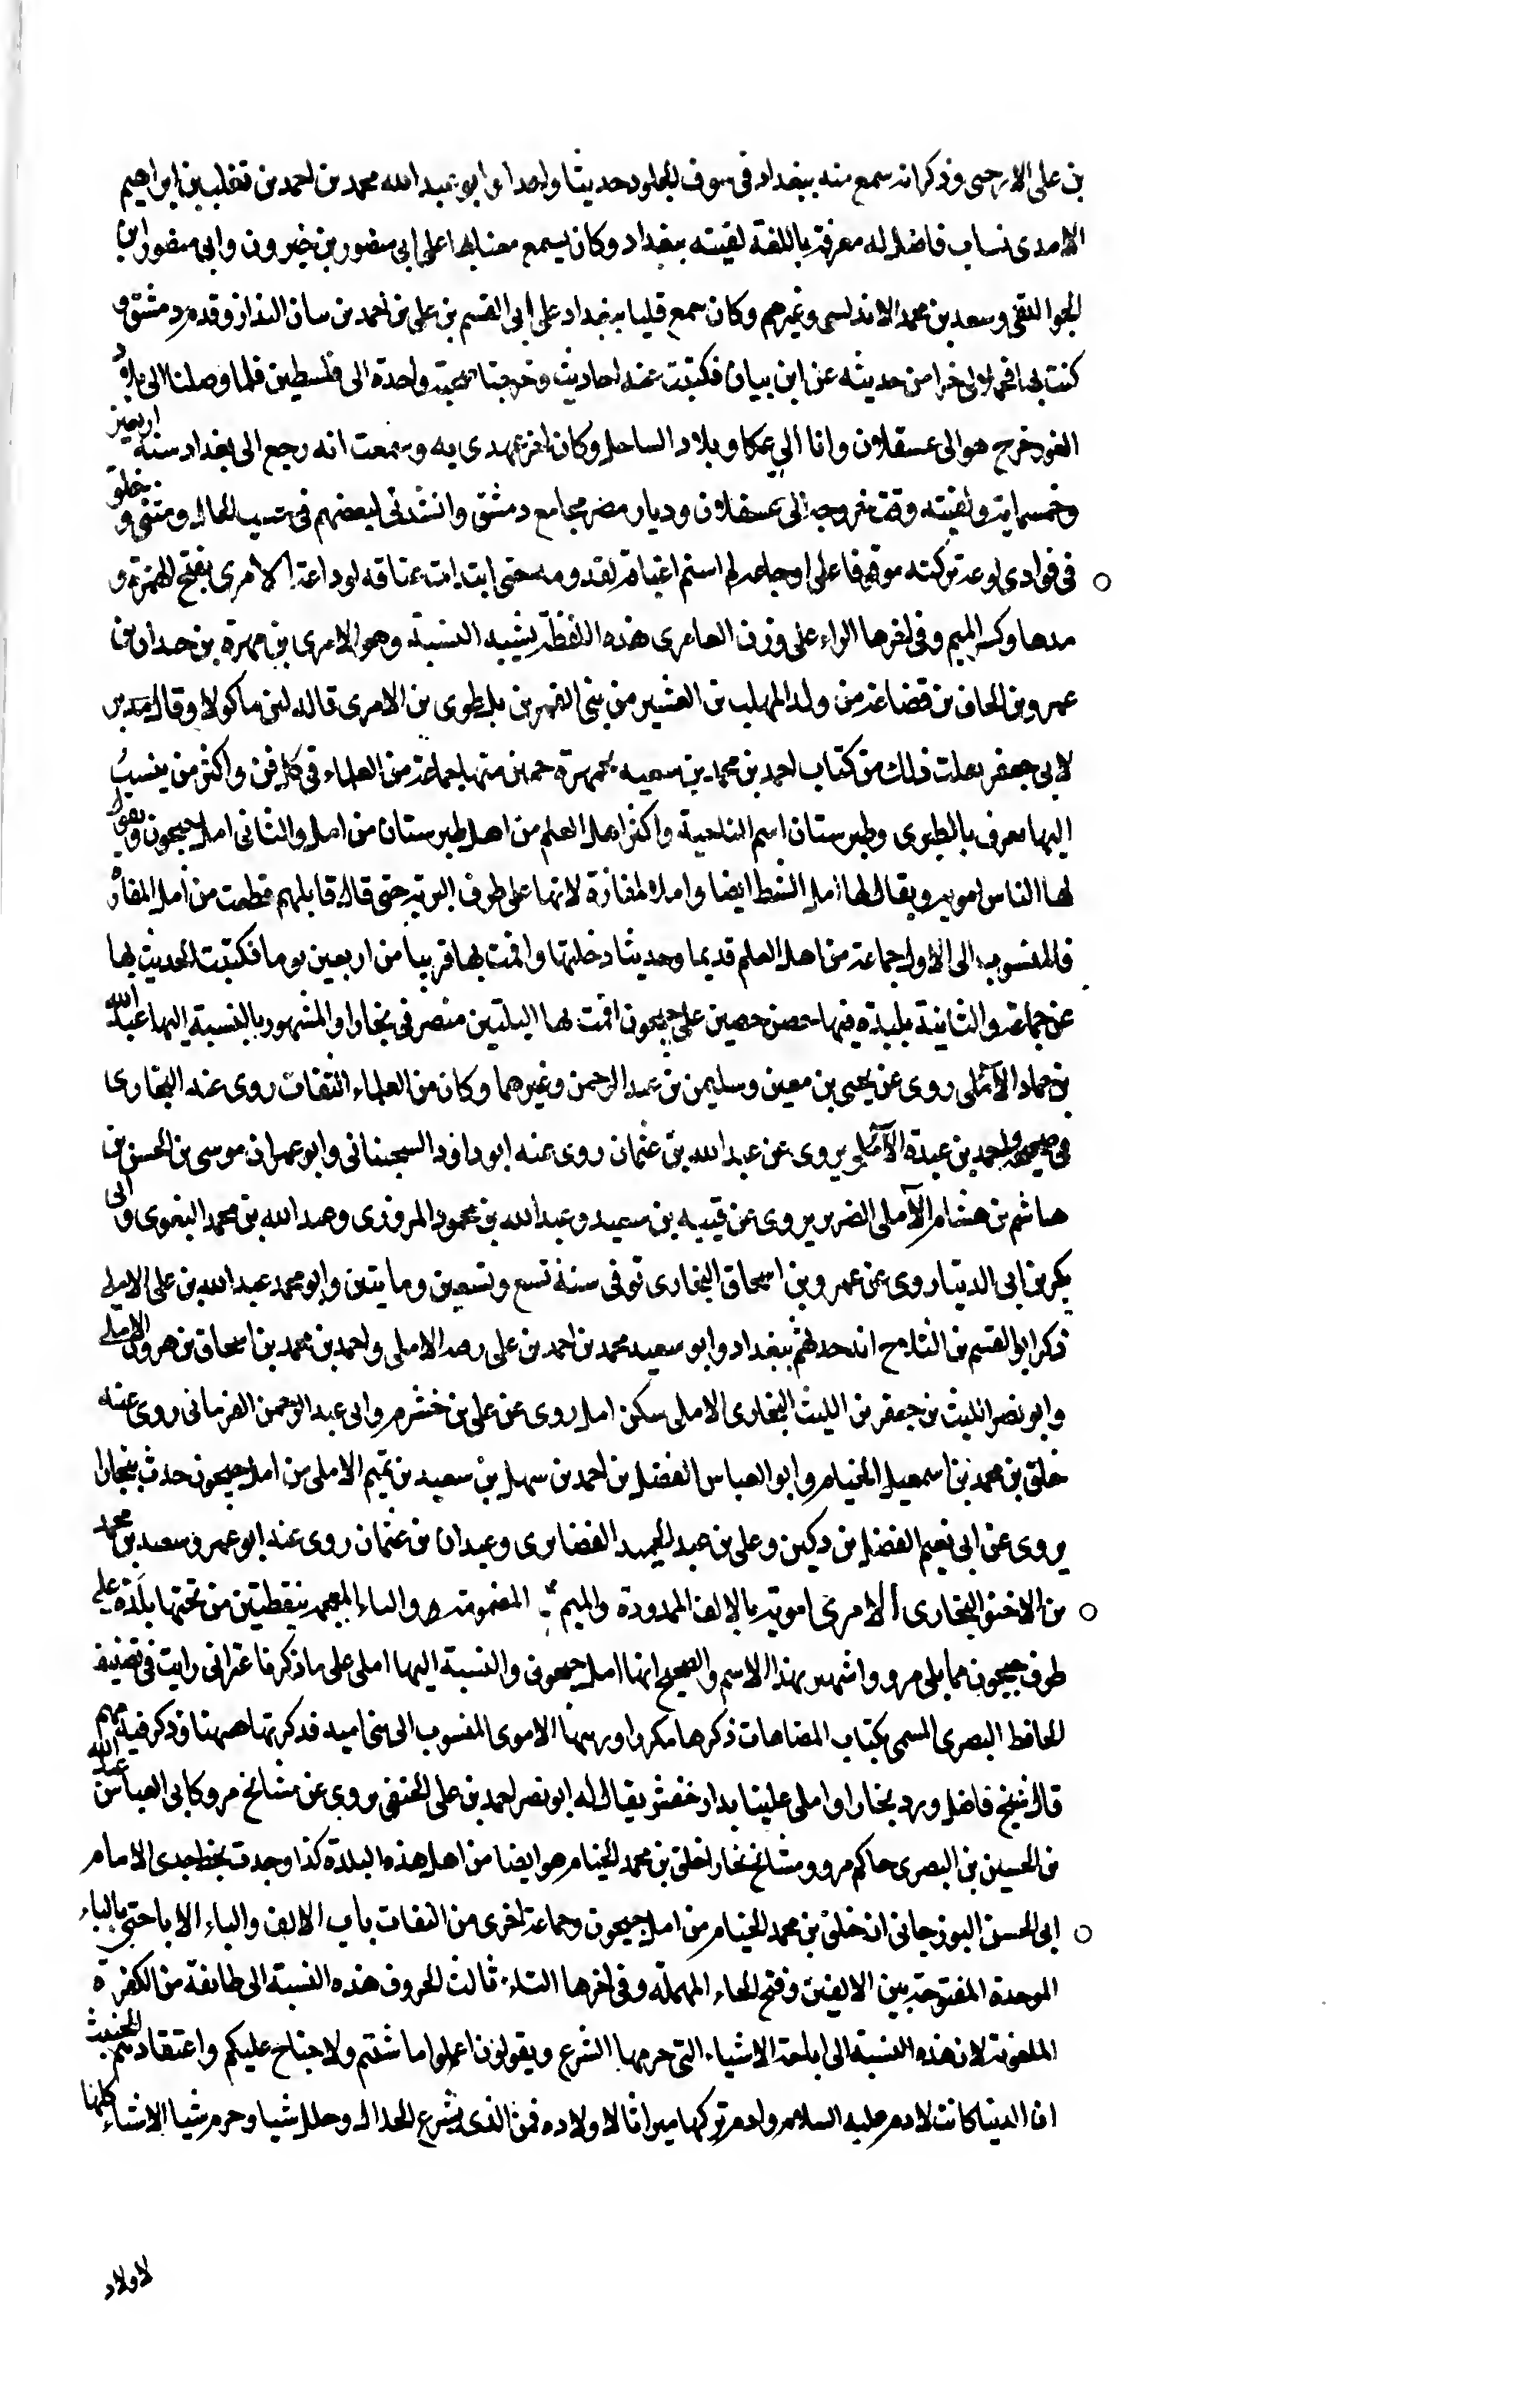 بن على الازجى وذكر انه سمع منه ببغداد فى سوق الجلود حديثا واحدا وابو عبد الله محمد بن احمد بن تغلب بن ابراهيم
الامدى نساب فاضل له معرفة باللغة لقيته ببغداد وكان يسمع معنا بها على ابى منصور بن خيرون وابى منصور ابن
الجواليقى وسعد بن محمد الاندلسى وغيرهم وكان سمع قليلا ببغداد على ابى القسم بن على بن احمد بن بيان وقدم دمشق و
كنت بها من حديثه عن ابن بيان فكتبت عنه احاديث وخرجنا صحبة واحدة الى فلسطين فلما وصلنا الى بلاد
الغور خرج هو الى عسقلان وانا الى عكا وبلاد الساحل وكان اخر عهدى به وسمعت انه رجع الى بغداد سنة اربعين
وخمسماية ولقيته وقت خروجه الى عسقلان وديار مصر بجامع دمشق وانشدنى لبعضهم
فى فوادى لوعة تركته موقوفا على اوجاعه لم استتم عناقه لقدومه حتى ابتدات عناقه لوداعه الامرى بفتح الهمزة و
مدها وكسر الميم وفى اخرها الراء على وزن العامرى هذه اللفظة يشبه النسبة وهو الامرى بن مهرة بن حيدان بن
عمرو بن الحاف بن قضاعة من ولد المهلب بن العثير من بنى الضمر بن بلطوى بن الامرى قاله ابن ماكولا وقال
لابى جعفر نقلت ذلك من كتاب احمد بن محمد بن سعيد بجمهرة منها جماعة من العلماء فى كل فن واكثر من ينسب
اليها يعرف بالطبرى وطبرستان اسم الناحية واكثر اهل العلم من اهل طبرستان من امل والثانى امل جيحون ويقول
لها الناس امويه ويقال لها امل الشط ايضا وامل المفازة لانها على طرف البرية حتى قال قايلهم قطعت من امل المفازة
فالمنسوب الى الاول جماعة من اهل العلم قديما وحديثا دخلتها واقمت بها قريبا من اربعين يوما وكتبت الحديث بها
عن جماعة والثانية بليدة فيها حصن حصين على جيحون اقمت بها ليلتين منصرفى بخارا والمشهور بالنسبة اليها عبد الله
بن حماد الآملى روى عن يحيى بن معين وسليمن بن عبد الرحمن وغيرهما وكان من العلماء الثقات روى عنه البخارى
فى صحيحه واحمد بن عبدة الآملى يروى عن عبد الله بن عثمان روى عنه ابو داود السجستانى وابو عمران موسى بن الحسن بن
هاشم بن هشام الآملى الضرير يروى عن قتيبه بن سعيد وعبد الله بن محمود المروزى وعبد الله بن محمد البغوى وابى
بكر بن ابى الدنيا روى عن عمرو بن اسحاق البخارى توفى سنة تسع وتسعين ومايتين وابو محمد عبد الله بن على الاملى
ذكر ابو القسم بن الثلاج انه حدثهم ببغداد وابو سعيد محمد بن احمد بن على الاملى واحمد بن محمد بن اسحاق بن هرون الاملى
وابو نصر الليث بن جعفر بن الليث البخارى الاملى سكن امل روى عن على بن خشرم وابى عبد الرحمن الفرمانى روى عنه
خلف بن محمد بن اسمعيل الخيام وابو العباس الفضل بن احمد بن سهل بن سعيد بن تميم الاملى من امل جيحون حدث ببخارا
يروى عن ابى نعيم الفضل بن دكين وعلى بن عبد الحميد الغضايرى وعبدان بن عثمان روى عنه ابو عمرو سعيد بن محمد
من الاحنف البخارى الامرى امويه بالالف الممدودة والميم المضمومة والياء المعجمة بنقطتين من تحتها بلدة على
طرف جيحون مما يلى مرو واشتهر بهذا الاسم والصحيح انها امل جيحون والنسبة اليها املى على ما ذكرنا غير انى رايت فى تصنيف
للحافظ البصرى المسمى بكتاب المضاهات ذكرها مكررا ورسمها الاموى المنسوب الى فذكرتها ههنا وذكر فيه مبهم
قال شيخ فاضل ورد بخارا واملى علينا يقال له ابو نصر احمد بن على الحنفى يروى عن مشايخ مرو كابى العباس عبد الله
بن الحسين بن البصرى حاكم مرو ومشايخ بخارا خلف بن محمد الخيام هو ايضا من اهل هذه البلدة كذا وجدت بخط جدى الامام
ابى الحسن البوزجانى ان خلف بن محمد الخيام من امل جيحون وجماعة اخرى من الثقات باب الالف والباء الاباحتى بالباء
الموحدة المفتوحة بين الالفين وفتح الحاء المهملة وفى اخرها التاء ثالث الحروف هذه النسبة الى طائفة من الكفرة
الملعونة لان هذه النسبة الى اباحة الاشياء التى حرمها الشرع ويقولون اعملوا ما شئتم ولا جناح عليكم واعتقادهم الخبيث
ان الدنيا كانت لادم عليه السلام وادم تركها ميراثا لاولاده فمن الذى يشرع الحلال وحلل شيا وحرم شيا الاشياء كلها
لاولاد